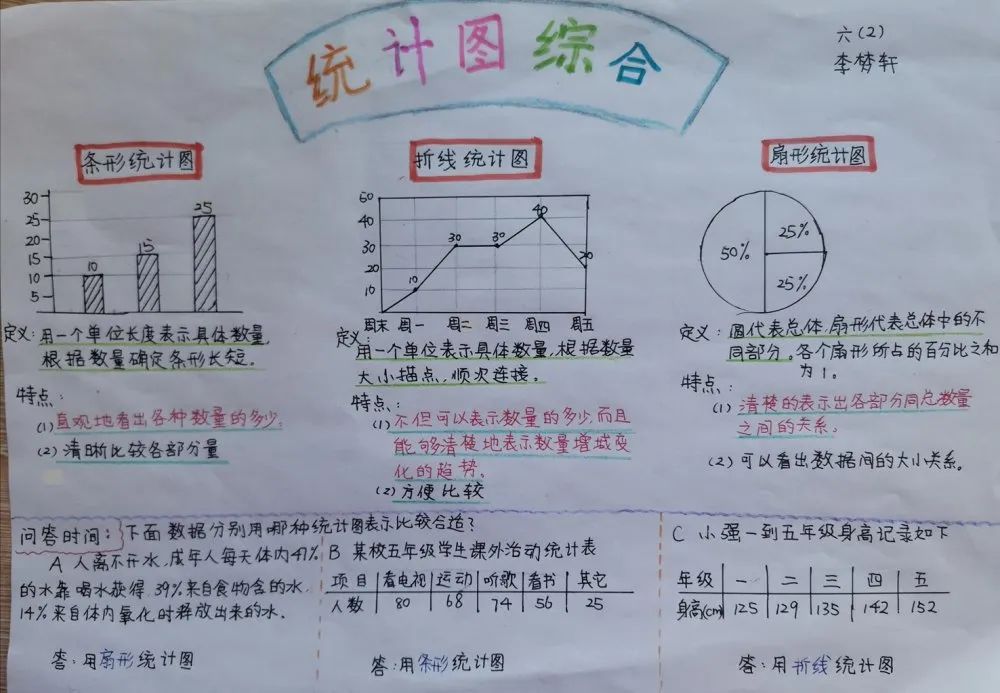 统计图综合
六(2)
李梦轩
条形统计图
30
25
20
15
10
5
10
15
25
定义：用一个单位长度表示具体数量，
根据数量确定条形长短。
特点：
(1) 直观地看出各种数量的多少。
(2) 清晰比较各部分量
折线统计图
60
40
30
20
10
10
30
30
40
20
周末 周一 周二 周三 周四 周五
定义：
用一个单位表示具体数量，根据数量
大小描点，顺次连接。
特点：
(1) 不但可以表示数量的多少，而且
能够清楚地表示数量增域变
化的趋势。
(2) 方便比较
扇形统计图
50%
25%
25%
定义：圆代表总体，扇形代表总体中的不
同部分。各个扇形所占的百分比之和
为1。
特点：
(1) 清楚的表示出各部分同总数量
之间的关系。
(2) 可以看出数据间的大小关系。
问答时间：下面数据分别用哪种统计图表示比较合适？
A 人离不开水，成年人每天体内47%
的水靠喝水获得，39%来自食物含的水，
14%来自体内氧化时释放出来的水。
答：用扇形统计图
B 某校五年级学生课外活动统计表
项目 看电视 运动 听歌 看书 其它
人数 80 68 74 56 25
答：用条形统计图
C 小强一到五年级身高记录如下
年级 一 二 三 四 五
身高(cm) 125 129 135 142 152
答：用折线统计图